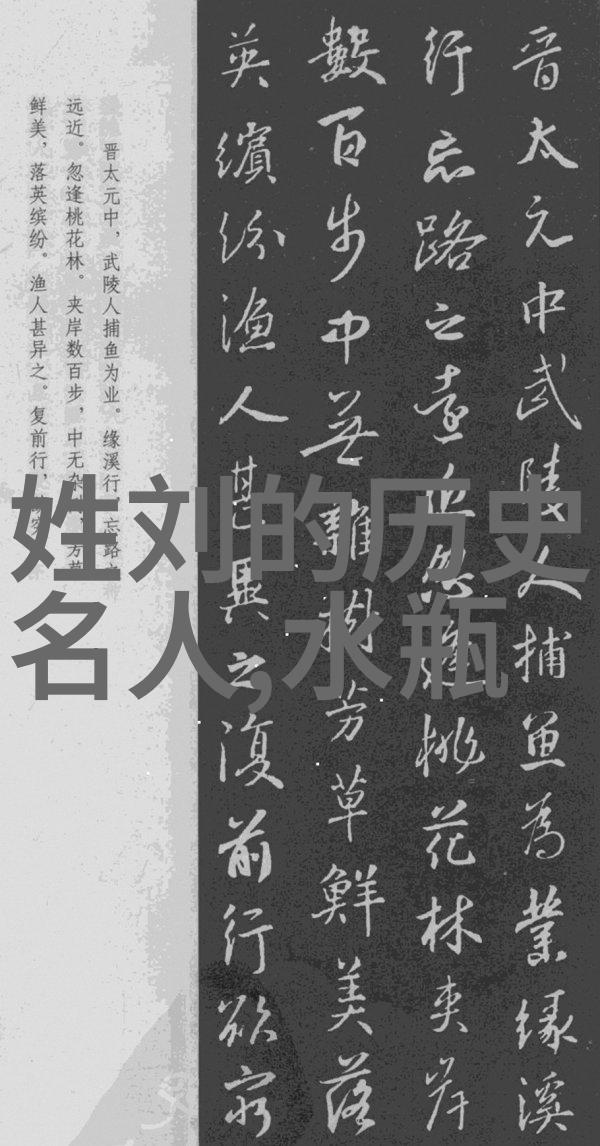 晋太元中武陵人捕魚為業缘溪
行忘路之遠近忽逢桃花林夹岸
數百步中無雜樹芳草鮮美落
英繽紛漁人甚異之復前行欲窮
晋太元中，武陵人捕鱼为业。缘溪行，忘路之
远近。忽逢桃花林。夹岸数百步，中无杂树，芳草
鲜美，落英缤纷。渔人甚异之。复前行，
姓刘的历史
名人,水瓶